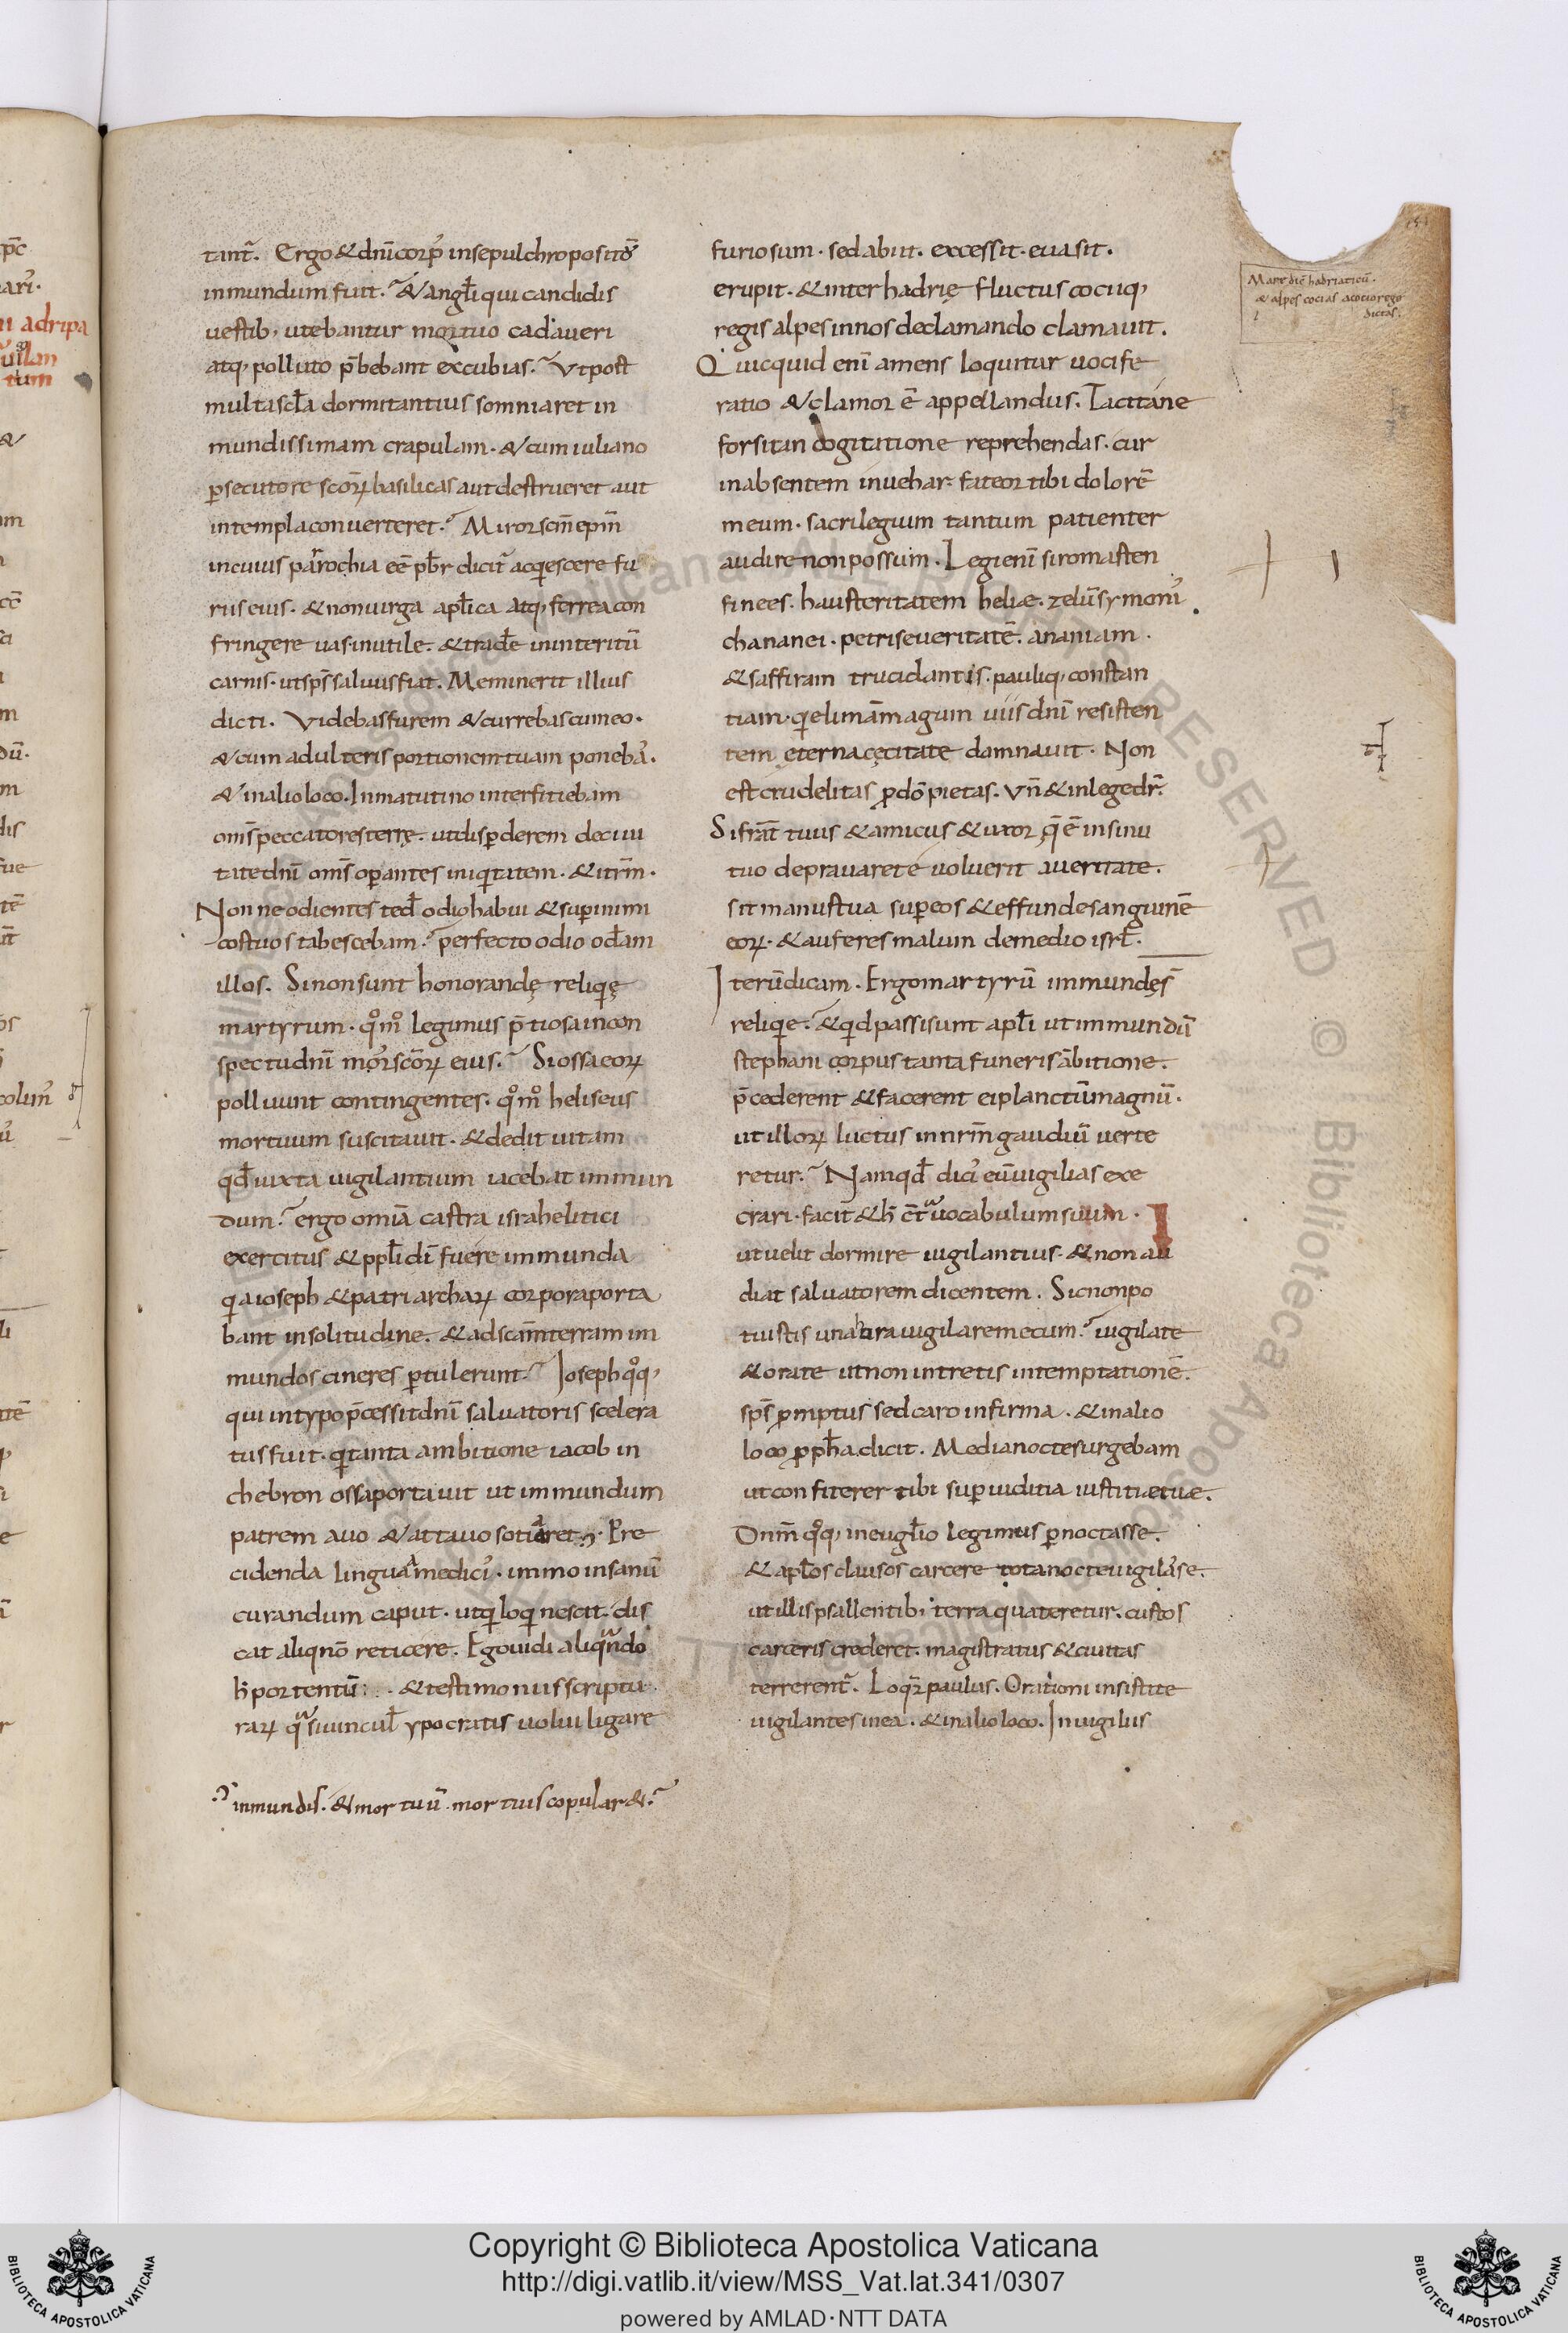 tant̃. Ergo & dn̄i corp̃ in sepulchro positū
inmundum fuit. & angl̄i qui candidis
uestib; utebantur mortuo cadaueri
atq; polluto p̄bebant excubias. Vt post
multa scl̄a dormitantius somniaret in
mundissimam crapulam. & cum iuliano
p̱secutore sc̄oꝝ basilicas aut destrueret aut
in templa conuerteret. Miror sc̄m ep̄m
in cuius parrochia eē pb̄r dicit̃ acq̱escere fu
rii eius. & non uirga apl̄ica atq; ferrea con
fringere uas inutile. & trad̄e in interitū
carnis. ut sp̄s saluus fiat. Meminerit illius
dicti. Videbas furem & currebas cum eo.
& cum adulteris portionem tuam poneba᷒.
& in alio loco. In matutino interfitiebam
om̄s peccatores terrę. ut disp̱derem de ciui
tate dn̄i om̄s op̱antes iniq̱tatem. & itr̄m.
Non ne odientes te d̄ odio habui & sup̱ inimi
cos tuos tabescebam. perfecto odio od̄am
illos. Si non sunt honorandę reliq̱ę
martyrum. qͦmͦ legimus p̄tiosa in con
spectu dn̄i mor᷒ sc̄oꝝ eius. Si ossa eoꝝ
polluunt contingentes. qͦmͦ heliseus
mortuum suscitauit. & dedit uitam
qd̄ iuxta uigilantium iacebat immun
dum. ergo omīa castra israhelitici
exercitus & ppl̄i dī fuere immunda
q̱a ioseph & patriarchaꝝ corpora porta
bant in solitudine. & ad sc̄am terram im
mundos cineres p̱tulerunt. Ioseph qͦq;
qui in typo p̄cessit dn̄i saluatoris scelera
tus fuit. q̱ tanta ambitione iacob in
chebron ossa portauit ut immundum
patrem auo & attauo sotiaret. Pre
cidenda lingua a medici᷒. immo insanū
curandum caput. ut q̱ loq̱ nescit. dis
cat aliq̱nō reticere. Ego uidi aliqᵃndo
h̄ portentū: & testimoniis scriptu
raꝝ qᵃsi uincul̄ ypocratis uolui ligare
inmundis. & mortuū mortuis copular&.
furiosum. sed abiit. excessit. euasit.
erupit. & inter hadrię fluctus cociiq;
regis alpes in nos declamando clamauit.
Quicquid enī amens loquitur uocife
ratio & clamor ē appellandus. Tacita ne
forsitan cogitatione reprehendas. cur
in absentem inuehar. fateor tibi dolorē
meum. sacrilegium tantum patienter
audire non possum. Legi enī siromasten
finees. hausteritatem heliæ. zelū symoni᷒
chananei. petri seueritatē. ananiam
& saffiram trucidantis. pauliq; constan
tiam. q̱ elimām magum uiis dn̄i resisten
tem ęterna cęcitate damnauit. Non
est crudelitas p̱ dō pietas. Vn̄ & in lege dr̄.
Si frat̄ tuus & amicus & uxor q̄ ē in sinu
tuo deprauare te uoluerit a ueritate.
sit manus tua sup̱ eos & effunde sanguinē
eoꝝ. & auferes malum de medio isrl̄.
Iterū dicam. Ergo martyrū immundę s̄
reliq̱e. & q̱d passi sunt apl̄i ut immundū
stephani corpus tanta funeris ābitione.
p̄cederent & facerent ei planctum magnū.
ut illoꝝ luctus in nr̄m gaudiū uerte
retur. Nam qd̄ dici᷒ eū uigilias exe
crari. facit & h̄ c̄tᵃ uocabulum suum.
ut uelit dormire uigilantius. & non au
diat saluatorem dicentem. Sic non po
tuistis una hora uigilare mecum. uigilate
& orate ut non intretis in temptationē.
sp̄s p̱mptus sed caro infirma. & in alio
loco p̱ph̄a dicit. Media nocte surgebam
ut confiterer tibi sup̱ iuditia iustitiæ tuæ.
Dn̄m qͦq; in eugl̄io legimus p̱noctasse.
& apl̄os clausos carcere tota nocte uigilasse.
ut illis psallentib; terra quateretur. custos
carceris crederet. magistratus & ciuitas
terrerent̃. Loq̱t̃ paulus. Orationi insistite
uigilantes in ea. & in alio loco. In uigiliis
Mare diē hadriaticū.
& alpes cocias a cotio rege
dictas.
Copyright © Biblioteca Apostolica Vaticana
http://digi.vatlib.it/view/MSS_Vat.lat.341/0307
powered by AMLAD·NTT DATA
BIBLIOTECA APOSTOLICA VATICANA
BIBLIOTECA APOSTOLICA VATICANA